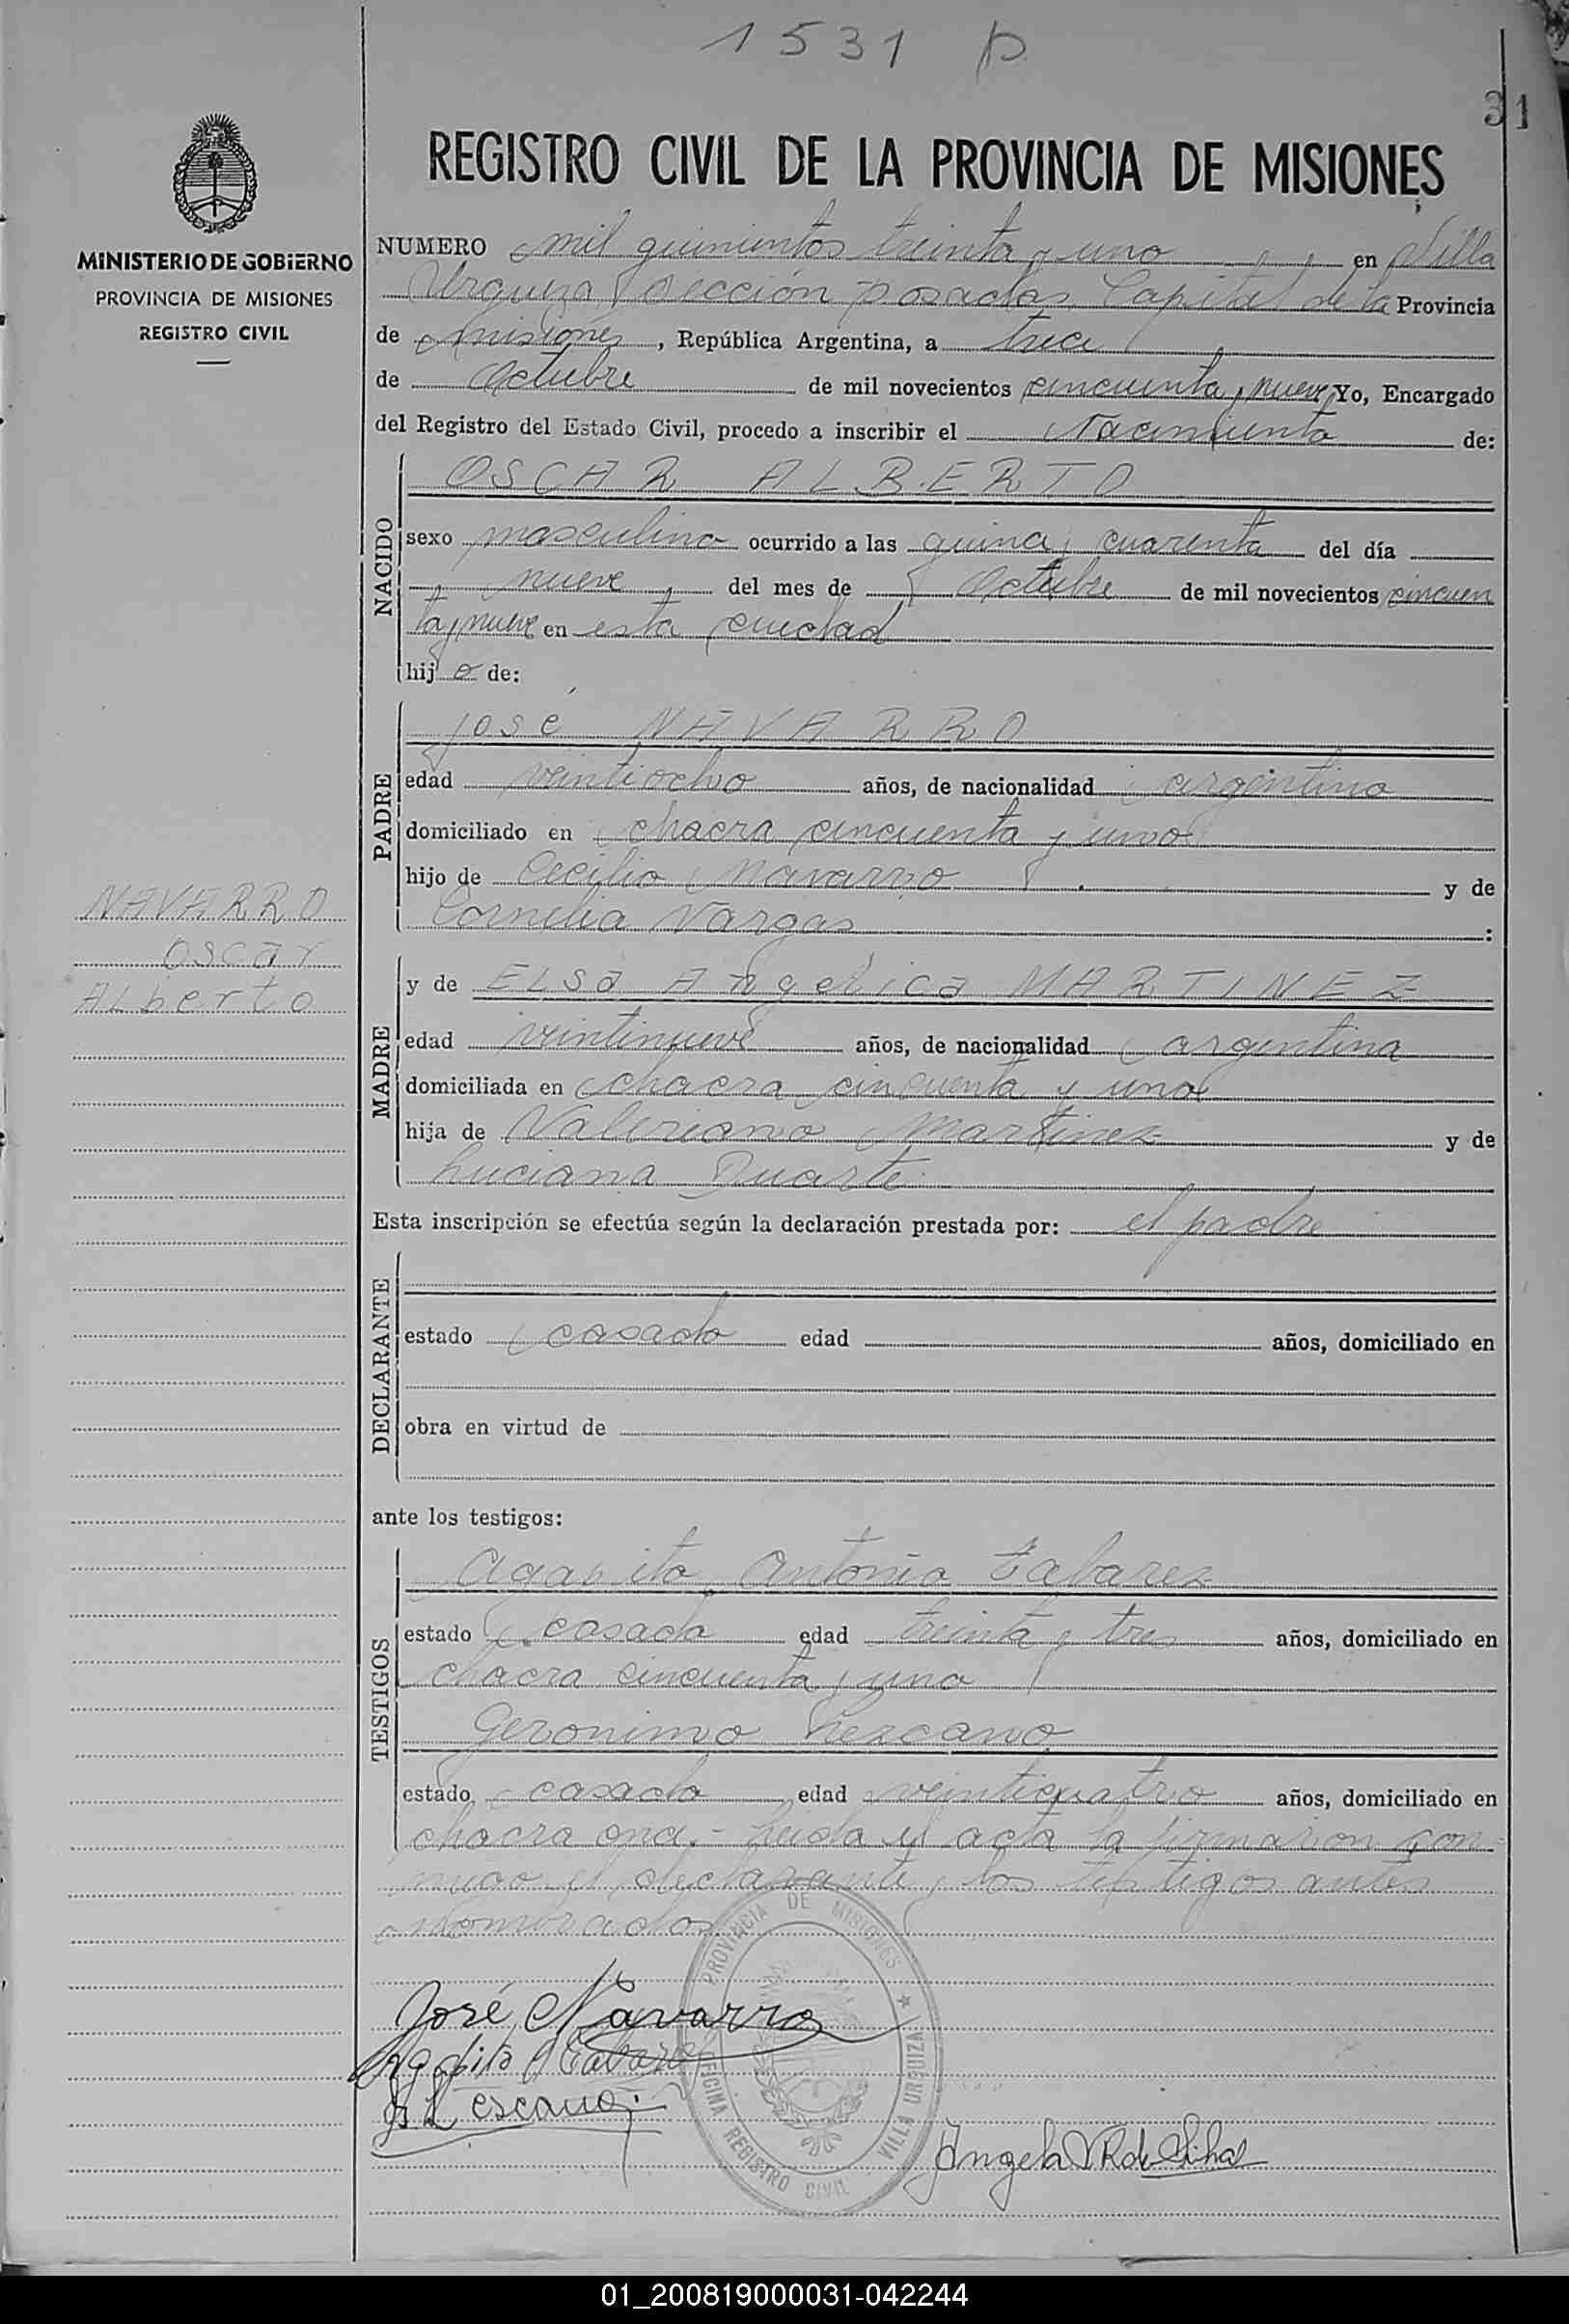 1531 P
31
REGISTRO CIVIL DE LA PROVINCIA DE MISIONES
MINISTERIO DE GOBIERNO
PROVINCIA DE MISIONES
REGISTRO CIVIL
NUMERO mil quinientos treinta y uno en Villa
Urquiza Sección Posadas Capital de la Provincia
de Misiones, República Argentina, a trece
de Octubre de mil novecientos cincuenta y nueve Yo, Encargado
del Registro del Estado Civil, procedo a inscribir el Nacimiento de:
NACIDO
OSCAR ALBERTO
sexo masculino ocurrido a las quince y cuarenta del día
nueve del mes de Octubre de mil novecientos cincuen
ta y nueve en esta ciudad
hijo de:
PADRE
José NAVARRO
edad veintiocho años, de nacionalidad argentino
domiciliado en chacra cincuenta y uno
hijo de Cecilio Navarro y de
Cornelia Vargas :
NAVARRO
Oscar
ALberto
MADRE
y de ELsa Angelica MARTINEZ
edad veintinueve años, de nacionalidad argentina
domiciliada en chacra cincuenta y uno
hija de Valeriano Martinez y de
Luciana Duarte
Esta inscripción se efectúa según la declaración prestada por: el padre
DECLARANTE
estado casado edad años, domiciliado en
obra en virtud de
ante los testigos:
TESTIGOS
Agapito Antonio Tabarez
estado casado edad treinta y tres años, domiciliado en
chacra cincuenta y uno
Geronimo Lezcano
estado casado edad veinticuatro años, domiciliado en
chacra once.- Leida el acta la firmaron con-
migo el declarante y los testigos antes
nombrados
José Navarro
Agapito A Tabarez
G. Lescano
Angela de
PROVINCIA DE MISIONES
OFICINA REGISTRO CIVIL VILLA URQUIZA
01_200819000031-042244